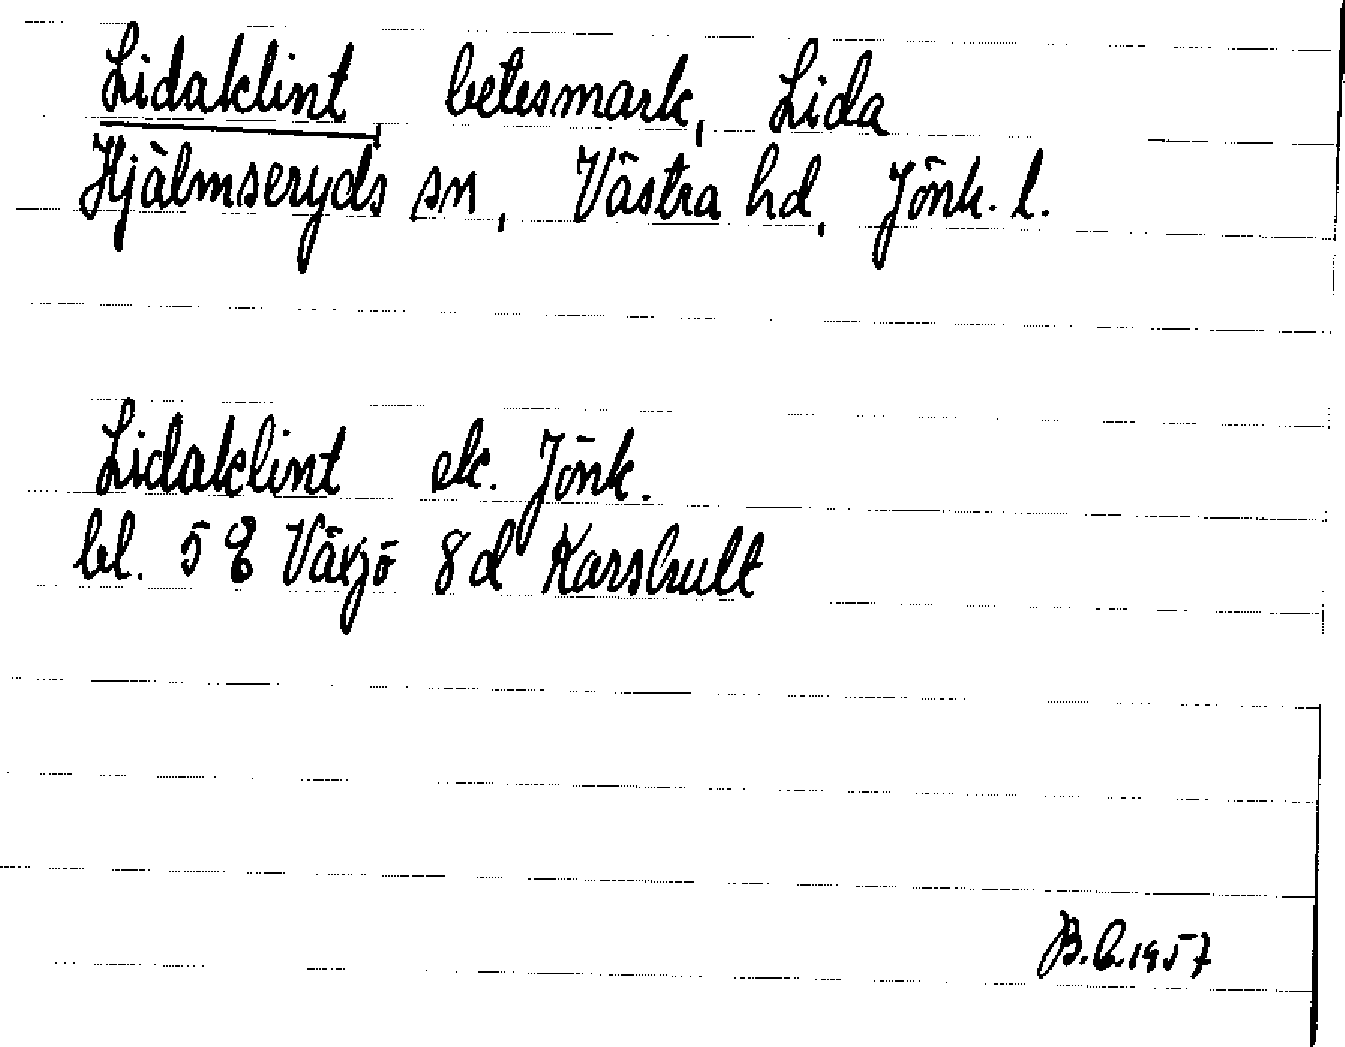 Lidaklint betesmark, Lida
Hjälmseryds sn, Västra hd, Jönk. l.
Lidaklint ek. Jönk.
bl. 5 E Växjö 8 d Karshult
1957